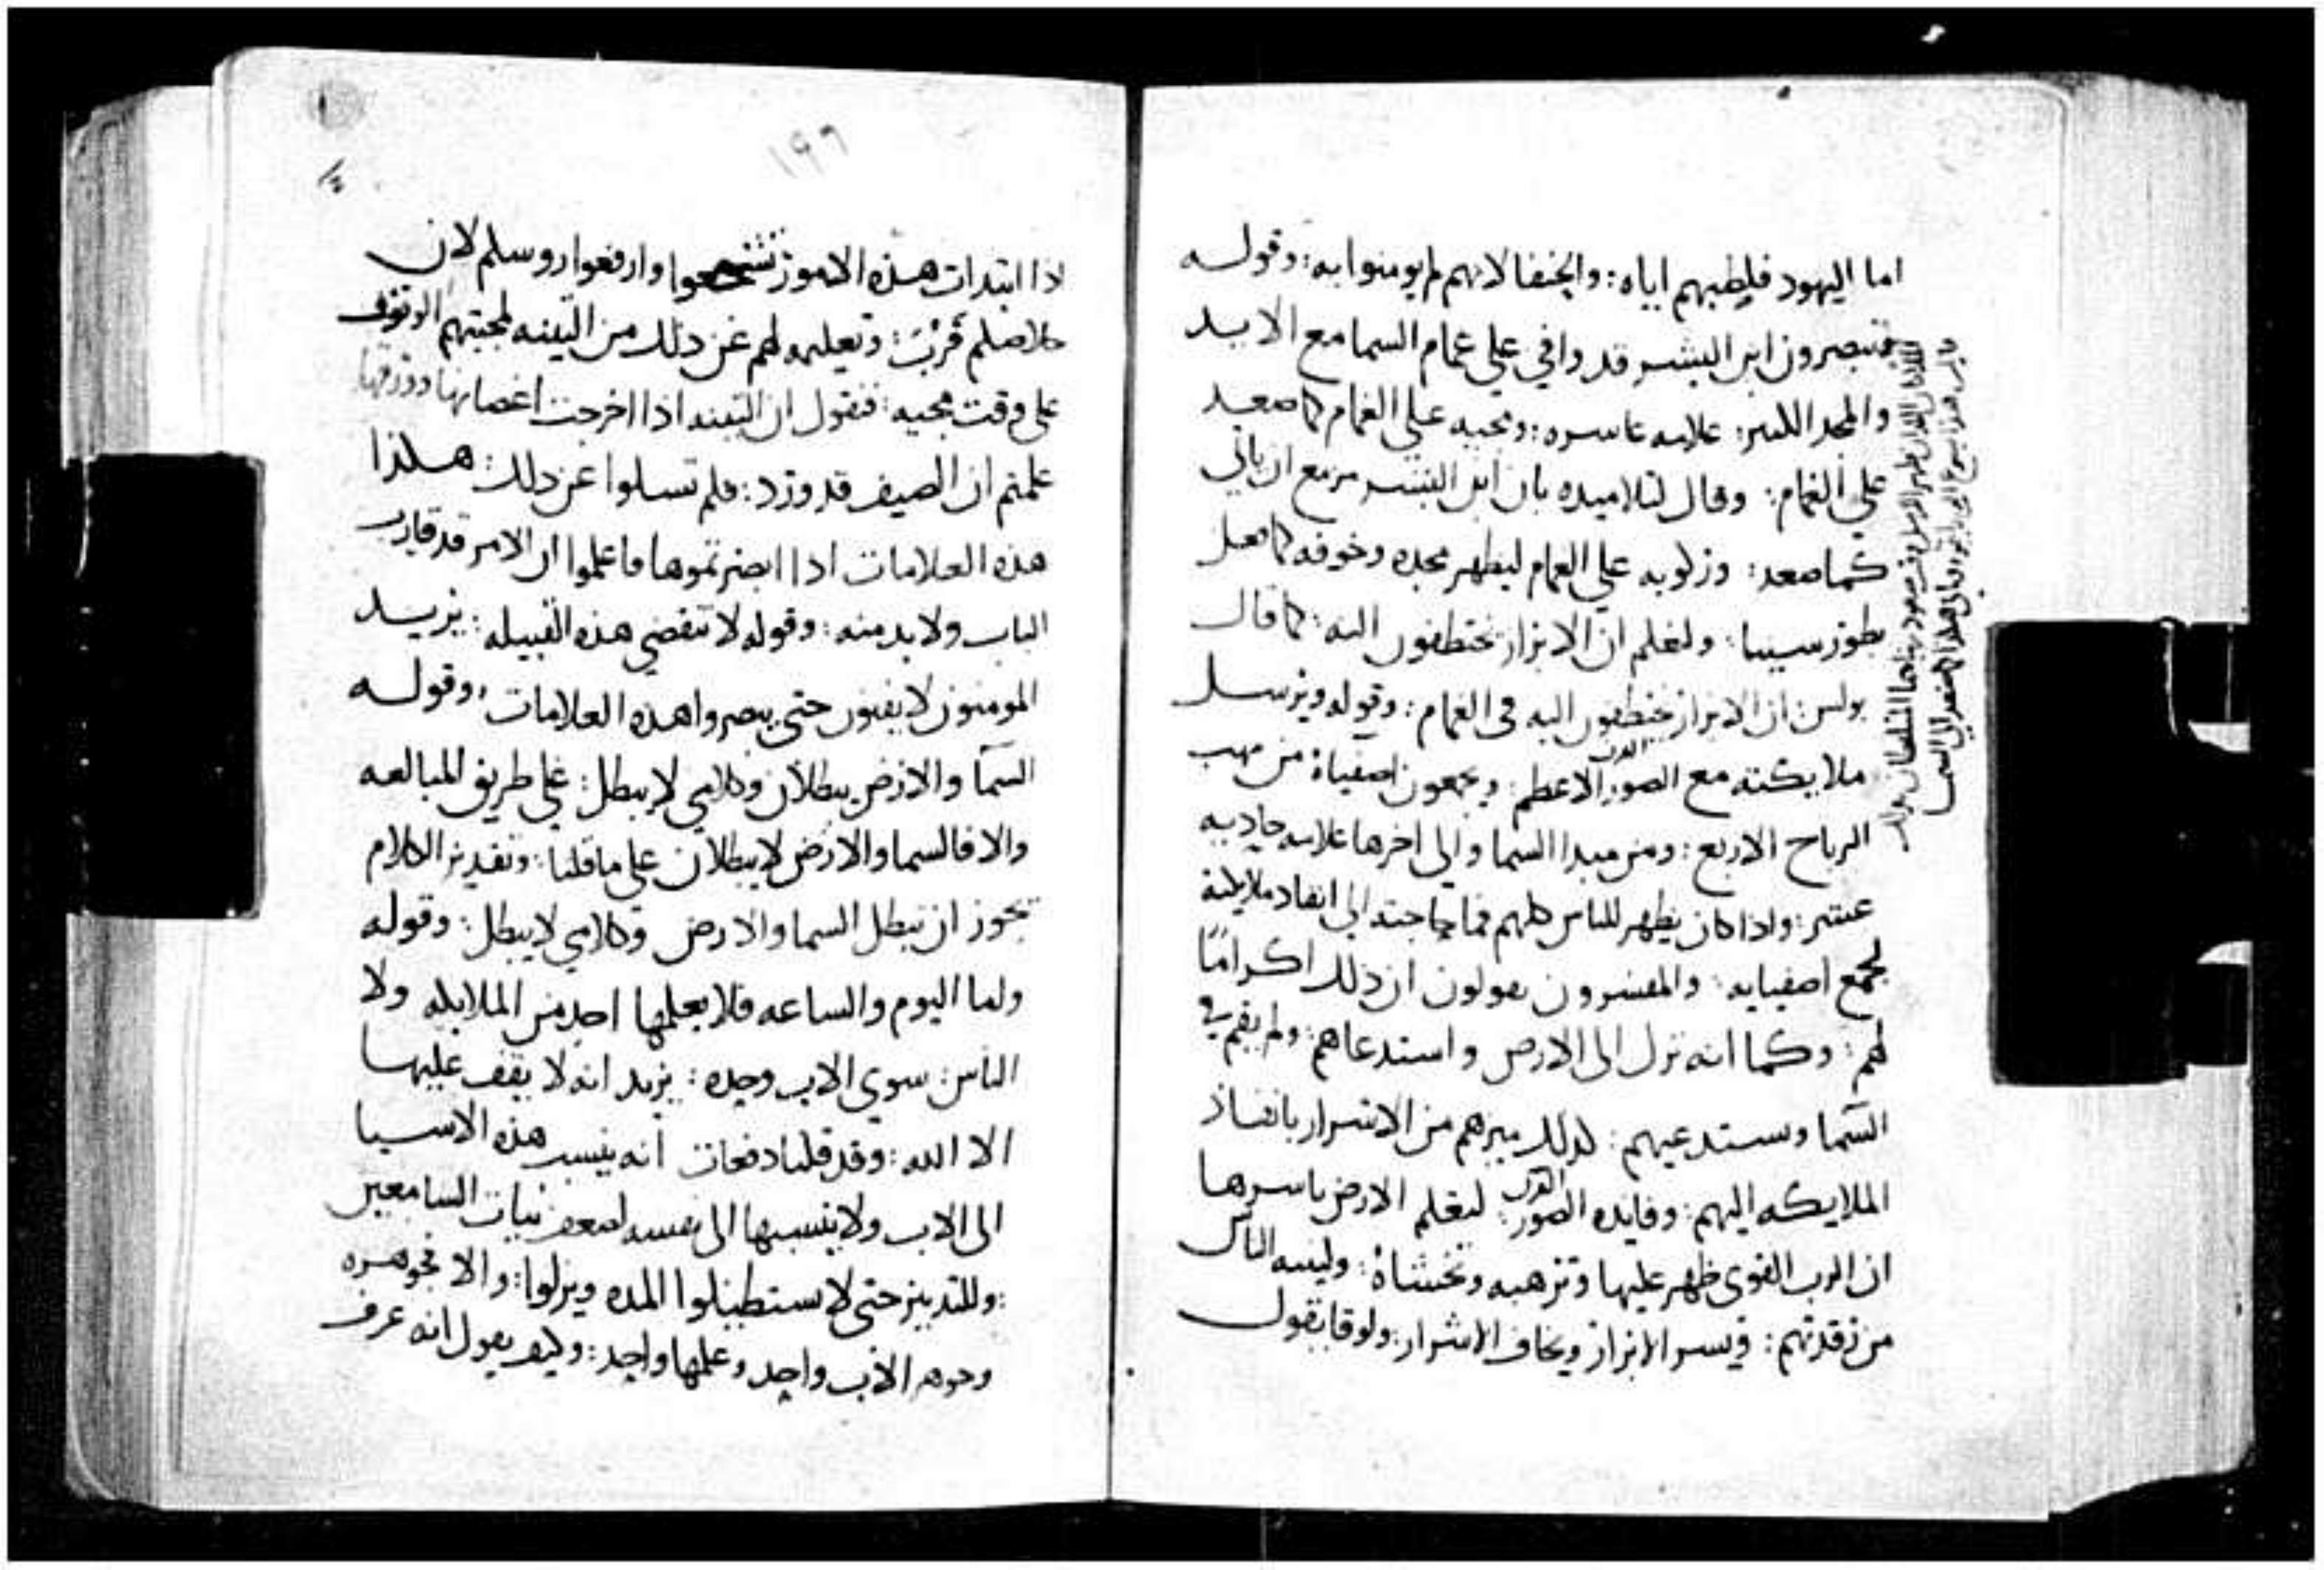 اما اليهود فلصلبهم اياه: والحنفا لانهم لم يومنوا به: وقوله
فتبصرون ابن البشر قد وافي علي غمام السما مع الايد
والمجد الكبير: علامه عاشره: ومجيه علي الغمام كما صعد
علي الغمام: وقال لتلاميده بان ابن البشر مزمع ان ياتي
كما صعد: وركوبه علي الغمام ليظهر مجده وخوفه كما فعل
بطور سينا: ولنعلم ان الابرار يختطفون اليه: كما قال
بولس: ان الابرار يختطفون اليه في الغمام: وقوله ويرسل
ملايكته مع الصور الاعظم: ويجمعون اصفياه من مهب
القرن
الرياح الاربع: ومن مبدا السما والى اخرها علامه حاديه
عشر: واذا كان يظهر للناس كلهم فما حاجته الى انفاد ملايكته
لجمع اصفيايه: والمفسرون يقولون ان ذلك اكرامًا
لهم: وكما انه نزل الى الارض واستدعاهم: ولم يقم في
السما ويستدعيهم: لذلك ميزهم من الاشرار بانفاذ
الملايكه اليهم: وفايده الصور: لتعلم الارض باسرها
القرن
ان الرب القوى ظهر عليها وترهبه وتخشاه: ولينبه الناس
من رقدتهم: فيسر الابرار ويخاف الاشرار: ولوقا يقول
١٩٦
اذا ابتدات هذه الامور تشجعوا وارفعوا روسكم لان
خلاصكم قربت: وتعليمه لهم عن ذلك من التينه لمحبتهم الوقوف
على وقت مجيه: فنقول ان التينه اذا اخرجت اغصانها وورقها
علمتم ان الصيف قد ورد: فلم تسلوا عن ذلك: هكذا
هذه العلامات اذا ابصرتموها فاعلموا ان الامر قد قارب
الباب ولا بد منه: وقوله لا تنقضي هذه القبيله: يريد
المومنون لا يفنون حتى يبصروا هذه العلامات: وقوله
السما والارض يبطلان وكلامي لا يبطل: على طريق المبالغه
والا فالسما والارض لا يبطلان على ما قلنا: وتقدير الكلام
يجوز ان تبطل السما والارض وكلامي لا يبطل: وقوله
ولما اليوم والساعه فلا يعلمها احد من الملايكه ولا
الناس: سوى الاب وحده: يريد انه لا يقف عليها
الا الله: وقد قلنا دفعات انه ينسب هذه الاشيا
الى الاب ولا ينسبها الى نفسه لضعف نيات السامعين
وللتدبير حتى لا يستطيلوا المده ويزلوا: والا فجوهره
وجوهر الاب واحد وعلمها واحد: وكيف يقول انه عرف